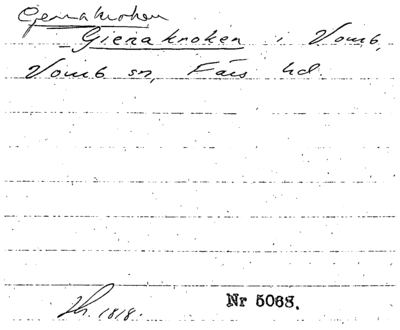 Gerrakroken
Gierakroken i Vomb,
Vomb sn, Färs hd.
Lh. 1818.
Nr 5068.